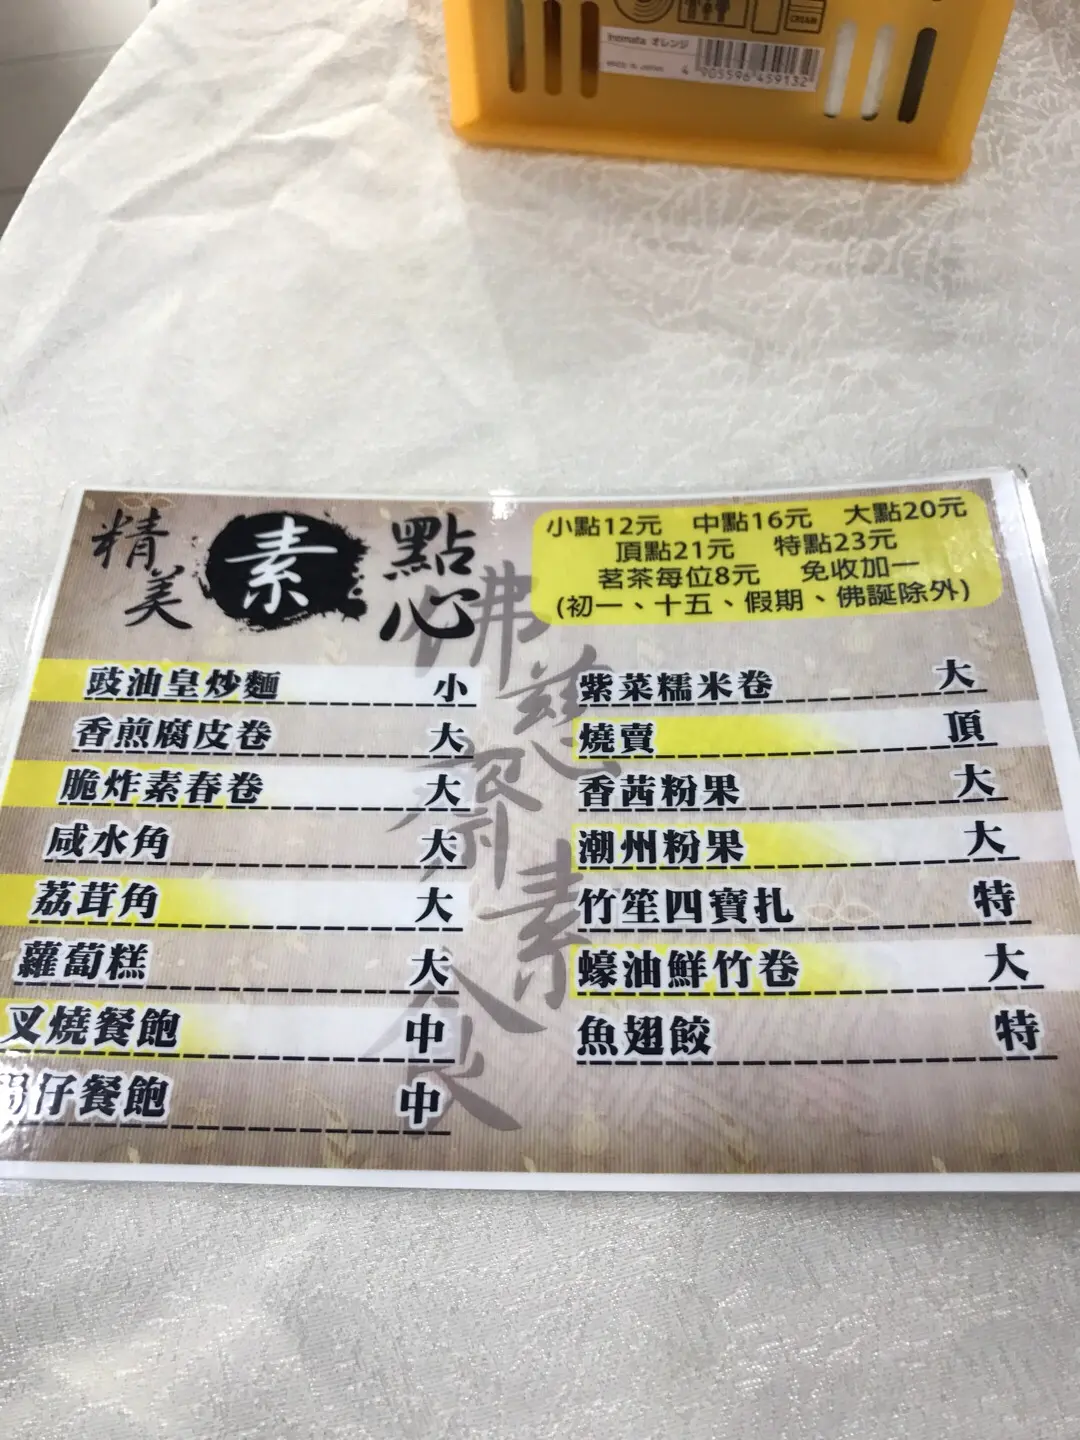 CREAM
Inomata オレンジ
MADE IN JAPAN
4 905596 459132
精美素點心
小點12元 中點16元 大點20元
頂點21元 特點23元
茗茶每位8元 免收加一
(初一、十五、假期、佛誕除外)
佛慈齋素食
豉油皇炒麵 小
香煎腐皮卷 大
脆炸素春卷 大
咸水角 大
荔茸角 大
蘿蔔糕 大
叉燒餐飽 中
仔餐飽 中
紫菜糯米卷 大
燒賣 頂
香茜粉果 大
潮州粉果 大
竹笙四寶扎 特
蠔油鮮竹卷 大
魚翅餃 特